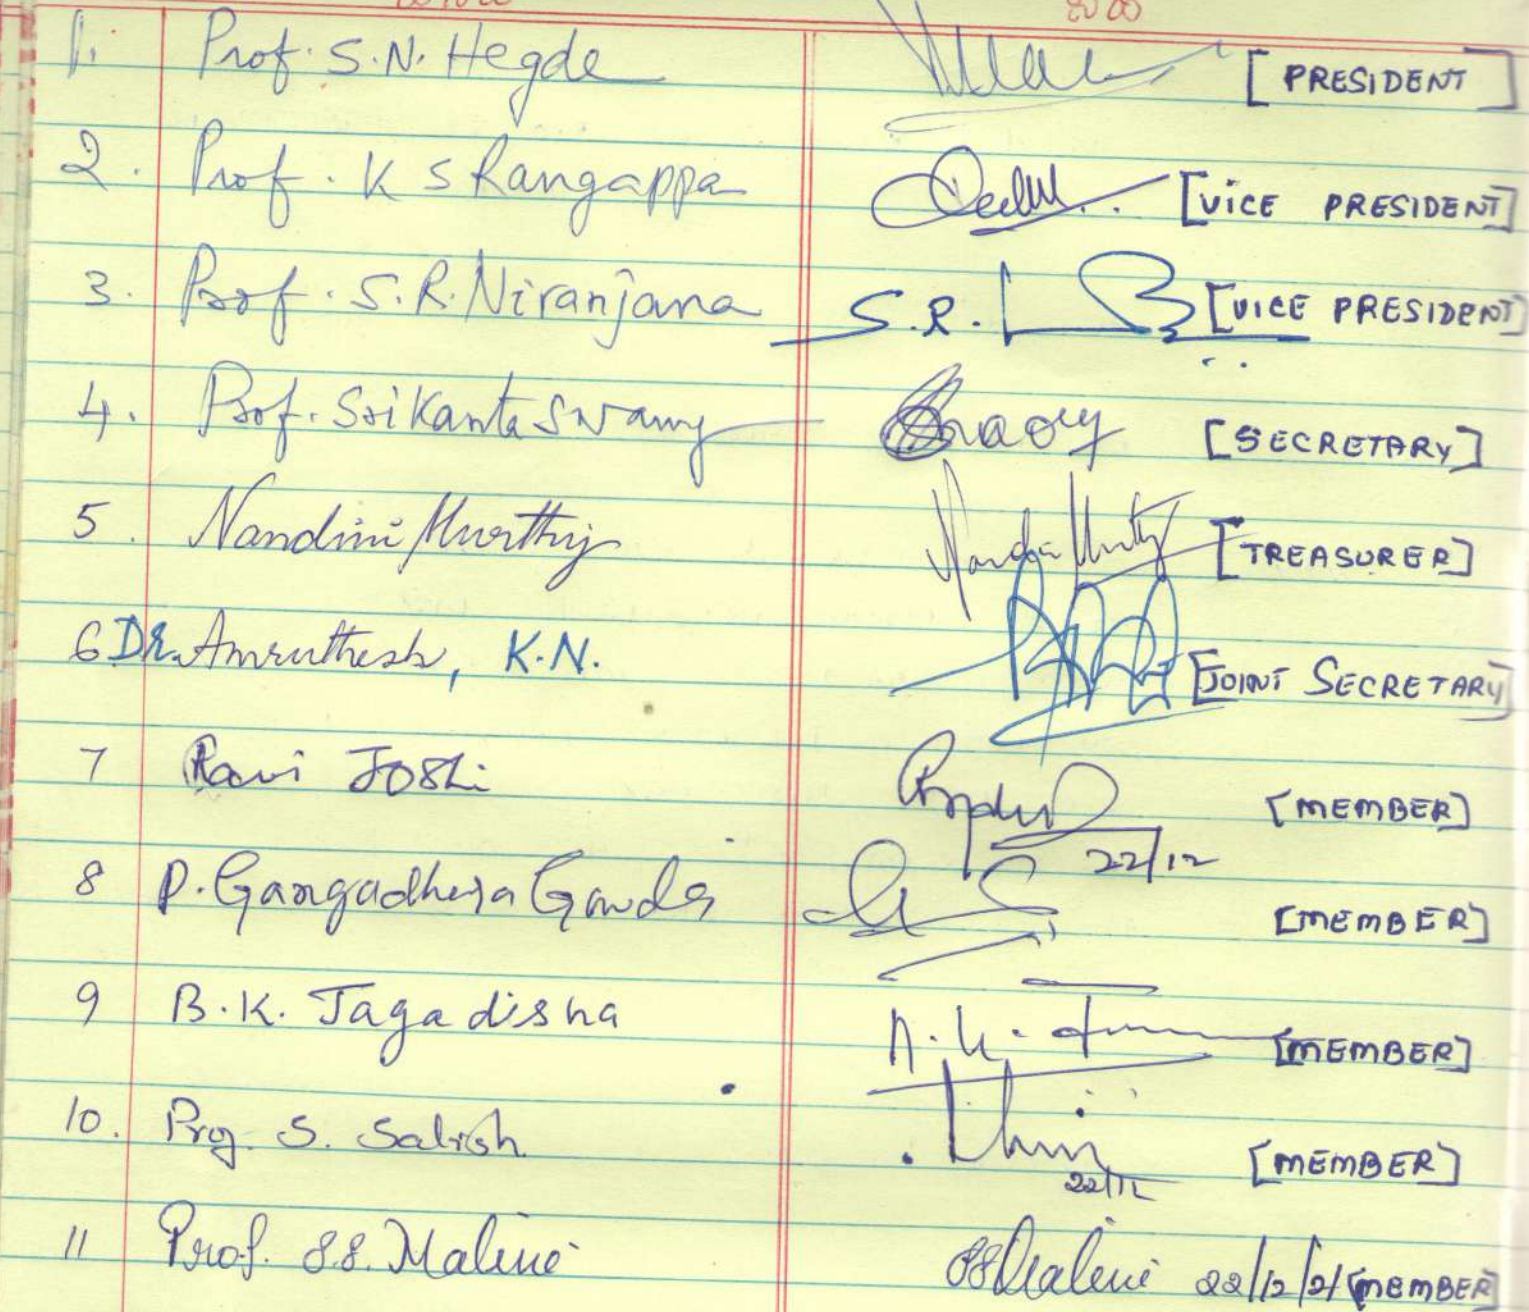 1. Prof. S.N. Hegde [PRESIDENT]
2. Prof. K S Rangappa [VICE PRESIDENT]
3. Prof. S.R. Niranjana S.R. [VICE PRESIDENT]
4. Prof. Srikanta Swamy [SECRETARY]
5. Nandini Murthy [TREASURER]
6 DR. Amruthesh, K.N. [JOINT SECRETARY]
7 Ravi JOShi [MEMBER]
22/12
8 D. Gangadhara Gowda [MEMBER]
9 B.K. Jagadisha [MEMBER]
10. Prof. S. Satish [MEMBER]
22/12
11 Prof. S.S. Malini SSMalini 22/12/21 [MEMBER]